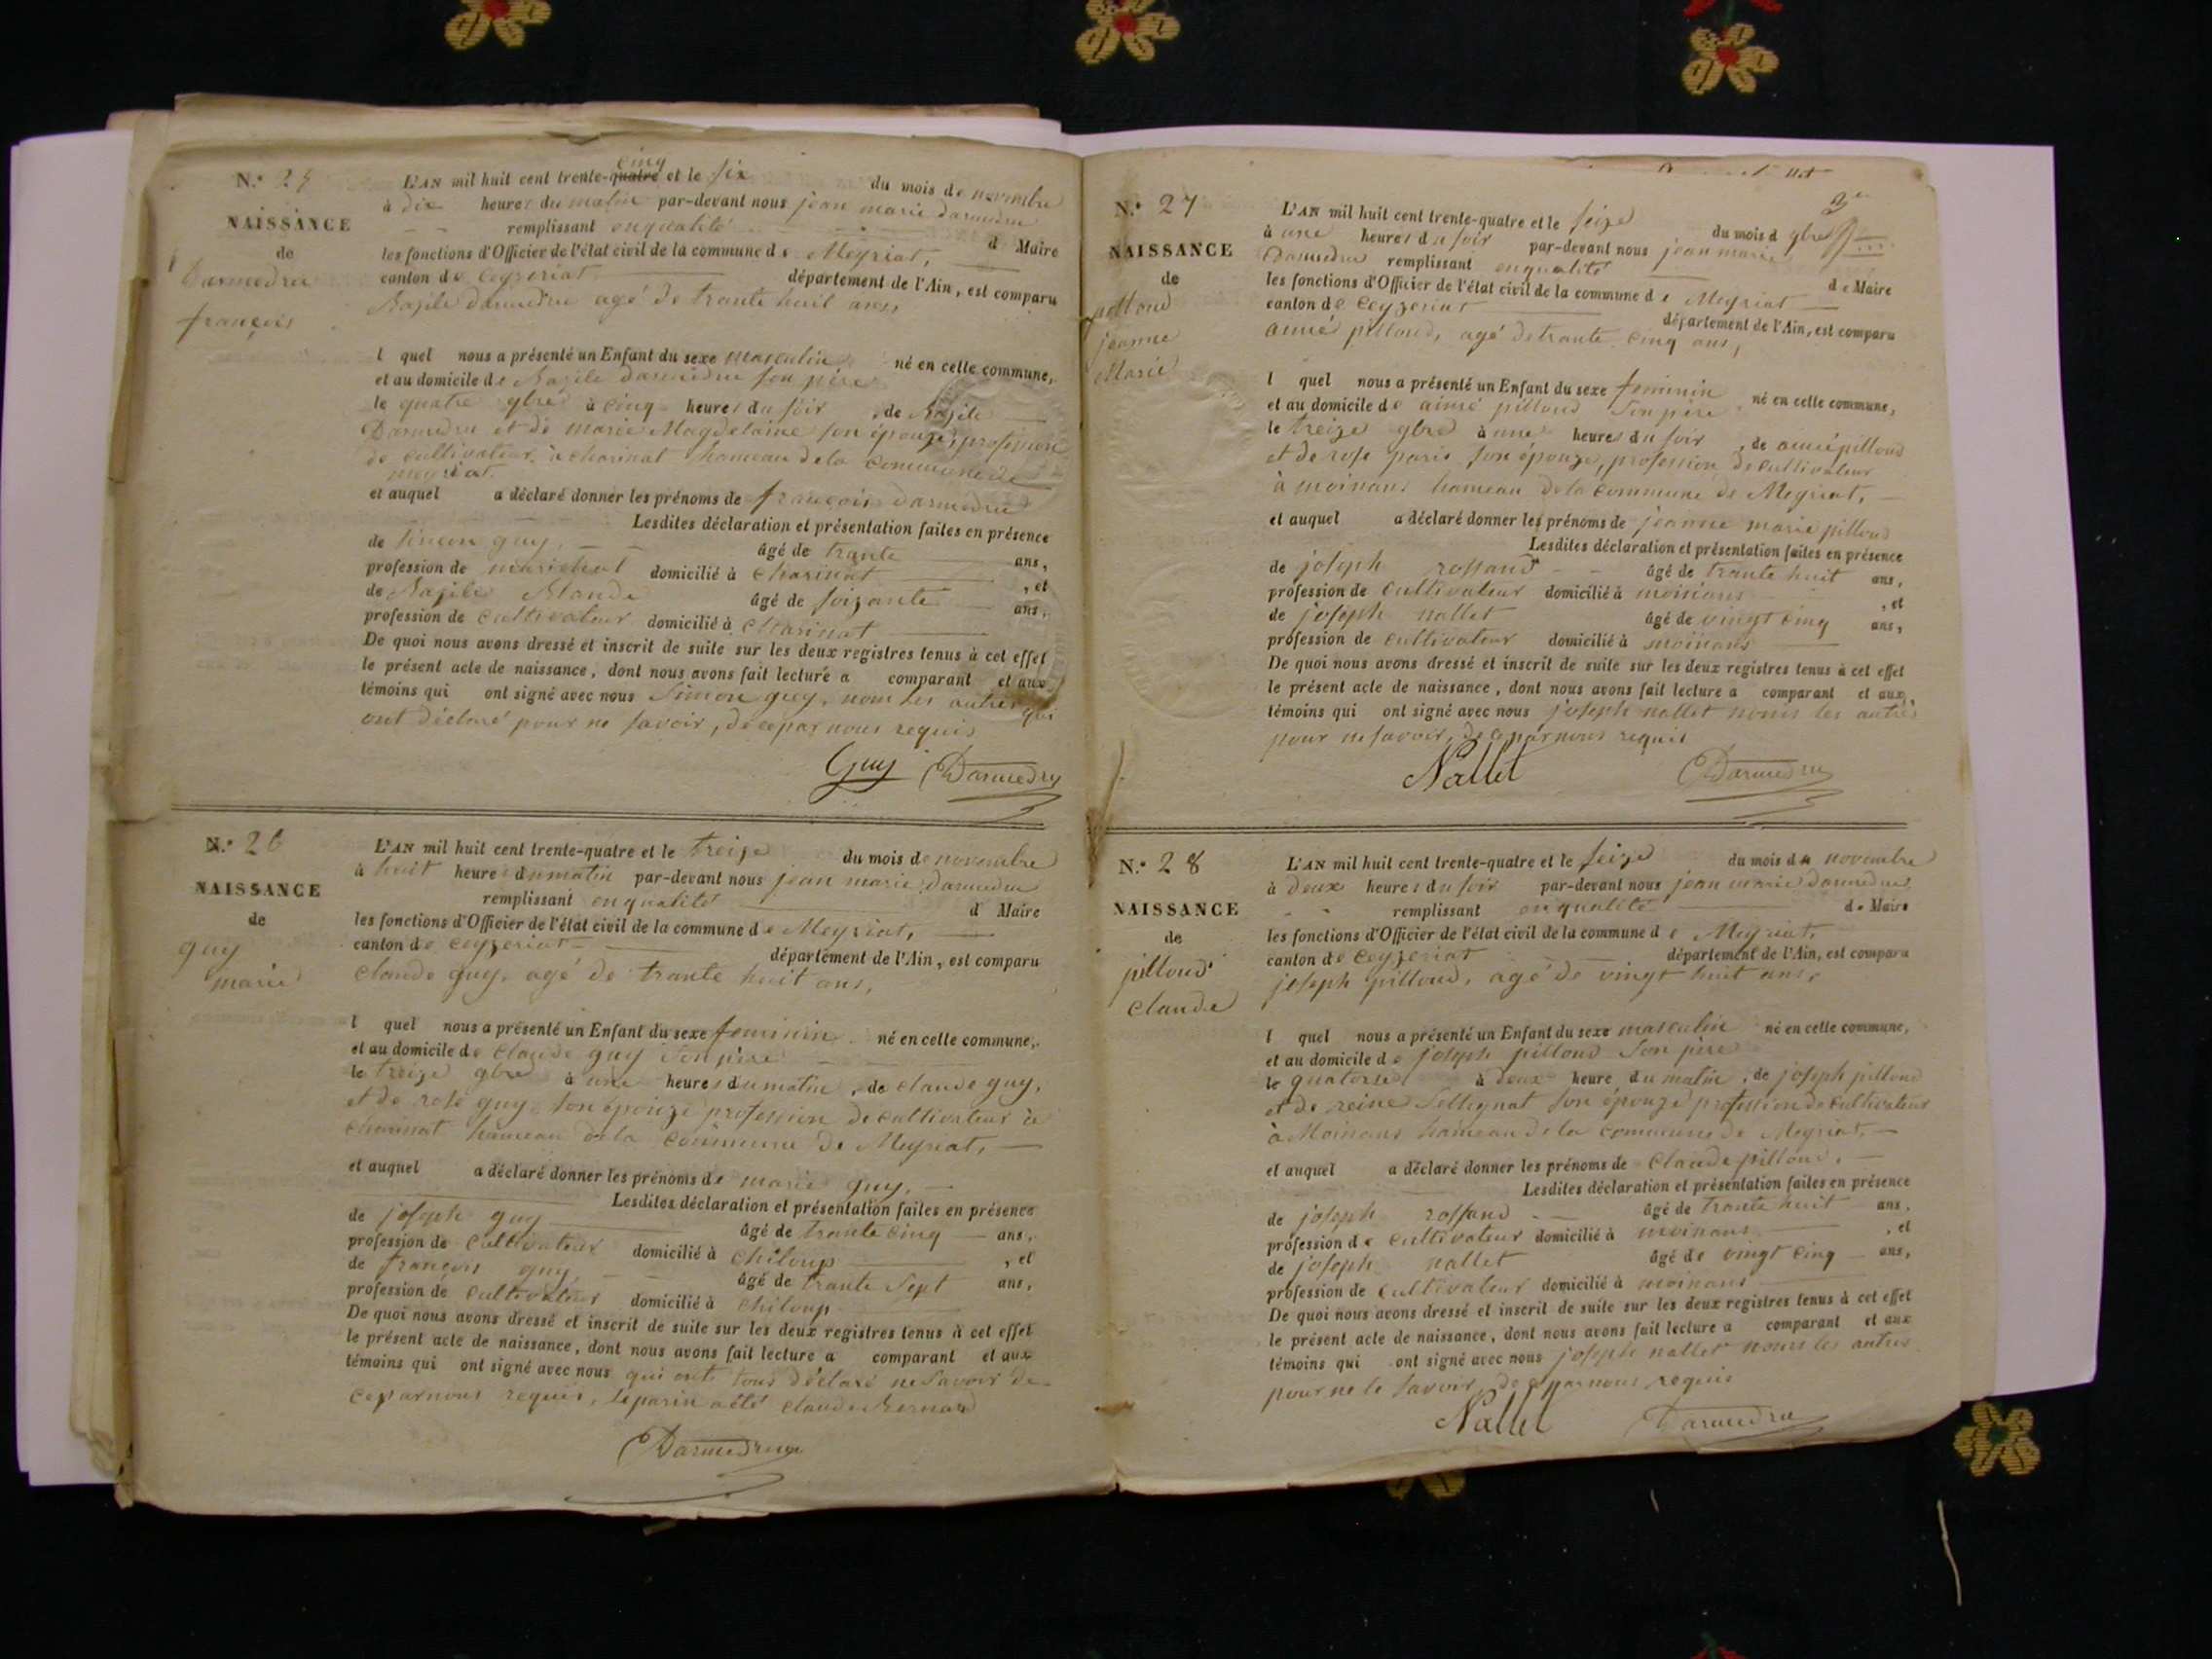 N.° 25
NAISSANCE
de
Darmedru
françois
cinq
L'AN mil huit cent trente-quatre et le six du mois de novembre
à dix heures du matin par-devant nous jean marie darmedru
remplissant en qualité d Maire
les fonctions d'Officier de l'état civil de la commune de Meyriat,
canton de Ceyzeriat département de l'Ain, est comparu
Bazile darmedru agé de trante huit ans,
l quel nous a présenté un Enfant du sexe masculin né en celle commune,
et au domicile de Bazile darmedru son père
le quatre 9bre à cinq heures du soir, de Bazile
Darmedru et de marie Magdelaine son épouze, profession
de cultivateur à charinat hameau de la commune de
meyriat.
et auquel a déclaré donner les prénoms de françois darmedru
Lesdites déclaration et présentation faites en présence
de simon guy, âgé de trante ans,
profession de marechal domicilié à charinat , et
de Bazile Blande âgé de soizante ans,
profession de cultivateur domicilié à charinat
De quoi nous avons dressé et inscrit de suite sur les deux registres tenus à cet effet
le présent acte de naissance, dont nous avons fait lecture a comparant et aux
témoins qui ont signé avec nous Simon guy, nom les autres qui
ont déclaré pour ne savoir, de ce par nous requis
Guy Darmedru
N.° 26
NAISSANCE
de
guy
marie
L'AN mil huit cent trente-quatre et le treize du mois de novembre
à huit heures du matin par-devant nous jean marie darmedru
remplissant en qualité d Maire
les fonctions d'Officier de l'état civil de la commune de Meyriat,
canton de ceyzeriat département de l'Ain, est comparu
claude guy, agé de trante huit ans,
l quel nous a présenté un Enfant du sexe feminin né en celle commune,
et au domicile de claude guy son père
le treize 9bre à une heures du matin, de claude guy,
et de rose guy son épouze profession de cultivateur à
charinat hameau de la commune de Meyriat,
et auquel a déclaré donner les prénoms de marie guy,
Lesdites déclaration et présentation faites en présence
de joseph guy âgé de trante cinq ans,
profession de cultivateur domicilié à chiloup , et
de françois guy âgé de trante sept ans,
profession de cultivateur domicilié à chiloup
De quoi nous avons dressé et inscrit de suite sur les deux registres tenus à cet effet
le présent acte de naissance, dont nous avons fait lecture a comparant et aux
témoins qui ont signé avec nous qui onts tous déclaré ne savoir de
ce par nous requis, le parin a été claude Bernard
Darmedru
N.° 27
NAISSANCE
de
pilloud
jeanne
Marie
L'AN mil huit cent trente-quatre et le seize du mois d 9bre
à une heures du soir par-devant nous jean marie
Darmedru remplissant en qualité de Maire
les fonctions d'Officier de l'état civil de la commune de Meyriat
canton de Ceyzeriat département de l'Ain, est comparu
aimé pilloud, agé de trante cinq ans,
l quel nous a présenté un Enfant du sexe feminin né en celle commune,
et au domicile de aimé pilloud son père
le treize 9bre à une heures du soir, de aimé pilloud
et de rose paris son épouze, profession de cultivateur
à moinans hameau de la commune de Meyriat,
et auquel a déclaré donner les prénoms de jeanne marie pilloud
Lesdites déclaration et présentation faites en présence
de joseph rossand âgé de trante huit ans,
profession de cultivateur domicilié à moinans , et
de joseph nallet âgé de vingt cinq ans,
profession de cultivateur domicilié à moinans
De quoi nous avons dressé et inscrit de suite sur les deux registres tenus à cet effet
le présent acte de naissance, dont nous avons fait lecture a comparant et aux
témoins qui ont signé avec nous joseph nallet noms les autres
pour ne savoir, de ce par nous requis
Nallet Darmedru
N.° 28
NAISSANCE
de
pilloud
claude
L'AN mil huit cent trente-quatre et le seize du mois de novembre
à deux heures du soir par-devant nous jean marie darmedru
remplissant en qualité de Maire
les fonctions d'Officier de l'état civil de la commune de Meyriat,
canton de Ceyzeriat département de l'Ain, est comparu
joseph pilloud, agé de vingt huit ans,
l quel nous a présenté un Enfant du sexe masculin né en celle commune,
et au domicile de joseph pilloud son père
le quatorse à deux heure du matin, de joseph pilloud
et de reine Sellignat son épouze profession de cultivateur
à Moinans hameau de la commune de Meyriat,
et auquel a déclaré donner les prénoms de claude pilloud,
Lesdites déclaration et présentation faites en présence
de joseph rossand âgé de trante huit ans,
profession de cultivateur domicilié à moinans , et
de joseph nallet âgé de vingt cinq ans,
profession de cultivateur domicilié à moinans
De quoi nous avons dressé et inscrit de suite sur les deux registres tenus à cet effet
le présent acte de naissance, dont nous avons fait lecture a comparant et aux
témoins qui ont signé avec nous joseph nallet noms les autres
pour ne le savoir, de ce par nous requis
Nallet Darmedru